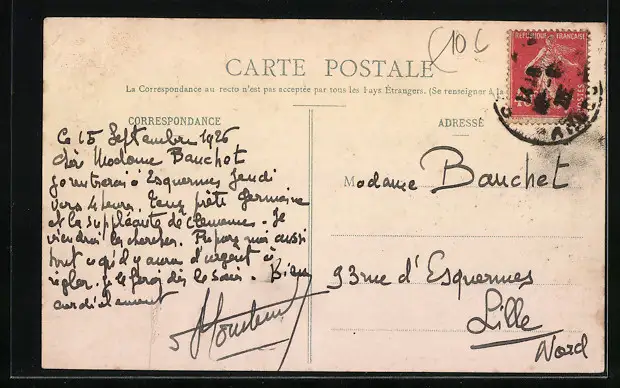 (10 c
REPUBLIQUE FRANÇAISE
POSTES
CARTE POSTALE
La Correspondance au recto n'est pas acceptée par tous les Pays Étrangers. (Se renseigner à la
CORRESPONDANCE
ADRESSÉ
Ce 15 Septembre 1926
Chère Madame Bauchet
je rentrerai à Esquermes Jeudi
vers 4 heures. Tenez prête Germaine
et la suppléante de Clemence. Je
viendrai les chercher. Préparez moi aussi
tout ce qu'il y aura d'urgent à
régler. je le ferai dès le soir. Bien
cordialement
Madame Bauchet
93 rue d'Esquermes
Lille
Nord